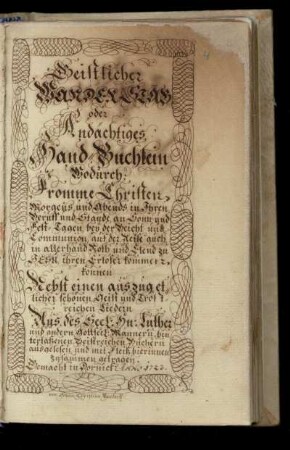 Geistlicher
WANDER STAB
oder
Andächtiges
Hand Büchlein
Wodurch
Fromme Christen,
Morgens und Abends in Ihren
Beruff und Stande an Sonn und
Fest-Tagen bey der Beicht und
Communion auf der Reise auch
in allerhand Noth und Elend zu
GEsu ihren Erlöser kommen
können
Nebst einen auszug et
licher schönen Geist und Trost
reichen Liedern
Aus des Seel: Hn: Luther
und andern Gottsel: Männern hin
terlassenen Geistreichen Büchern
ausgelesen und mit Fleiß hierinnen
zusammen getragen.
Gemacht in 1723.
von Johan Christian